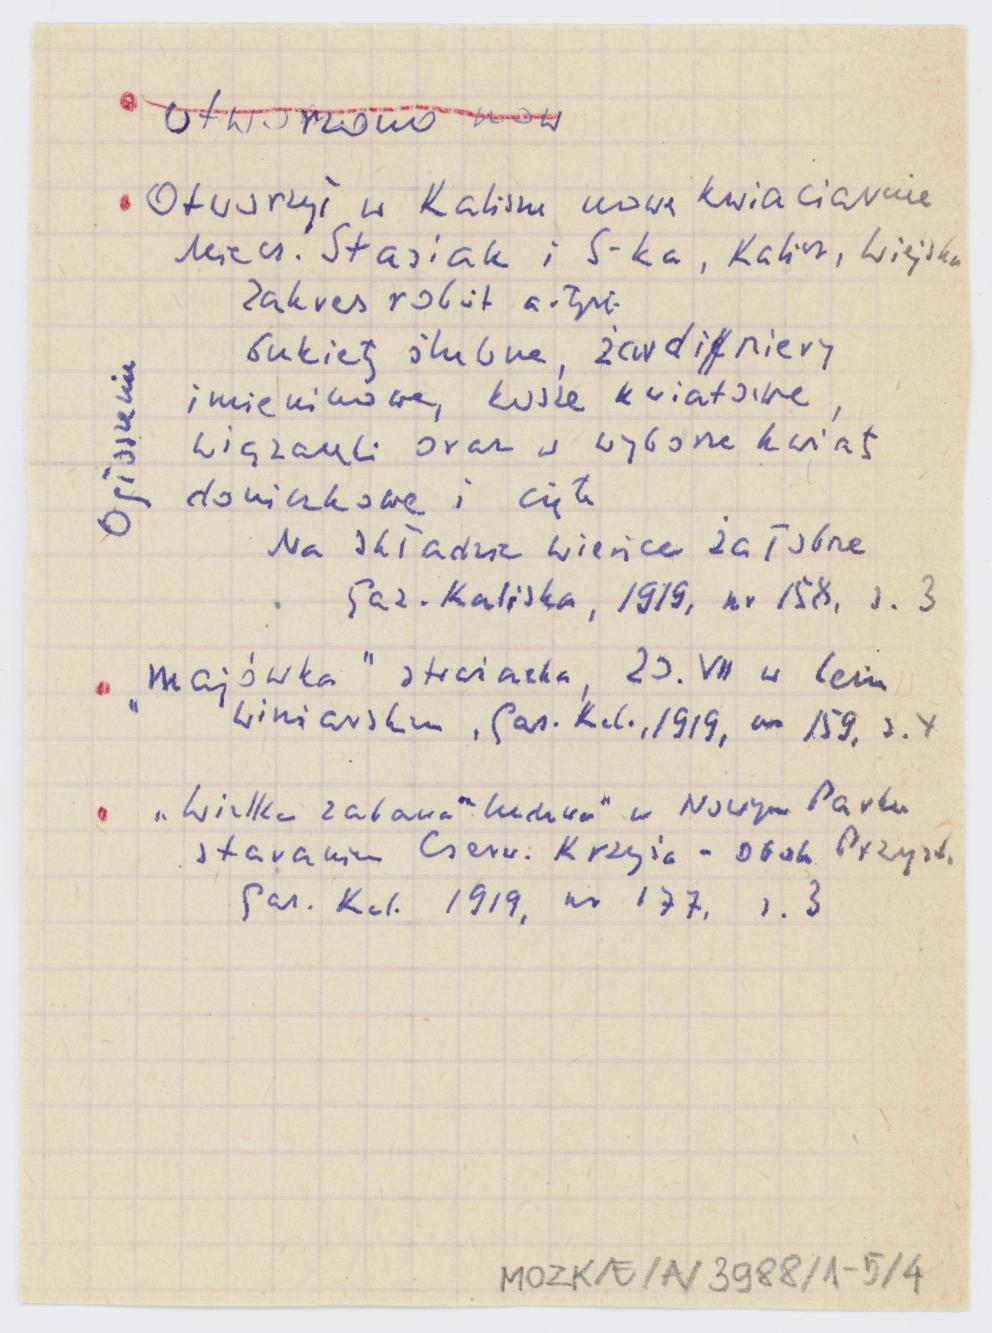 Otworzono now
Otworzył w Kaliszu nową kwiaciarnię
Miecz. Stasiak i S-ka, Kalisz, Wiejska
Zakres robót artyst.
bukiety ślubne, żardinniery
imieninowe, kosze kwiatowe,
wiązanki oraz w wyborze kwiaty
doniczkowe i cięte
Na składzie wieńce żałobne
Gaz. Kaliska, 1919, nr 158, s. 3
Ogłoszenie
"Majówka" strażacka, 20. VII w lesie
winiarskim, Gaz. Kal., 1919, nr 159, s. 4
"Wielka zabawa ludowa" w Nowym Parku
staraniem Czerw. Krzyża - obok Przyst.
Gaz. Kal. 1919, nr 177, s. 3
MOZK/E/A/3988/1-5/4